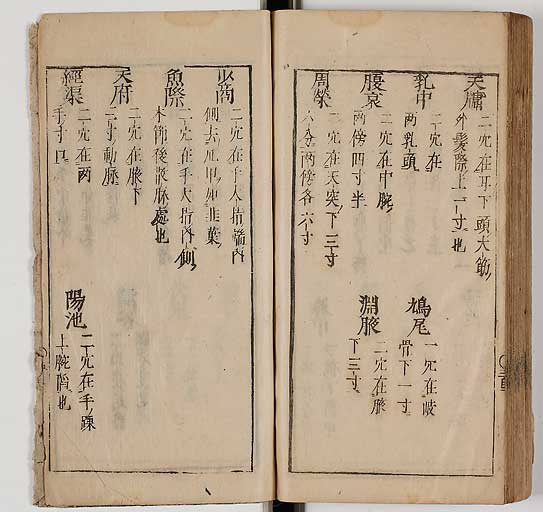 天牖
二穴在耳下頭大筋
外髮際上一寸也
乳中
二穴在
两乳頭
鳩尾
一穴在岐
骨下一寸
腹哀
二穴在中脘
两傍四寸半
淵腋
二穴在腋
下三寸
周榮
二穴在天突下三寸
六分两傍各六寸
少商
二穴在手大指端内
側去爪甲如韭葉
魚際
二穴在手大指内側
本節後散脉處也
天府
二穴在腋下
三寸動脉
經渠
二穴在两
手寸口
陽池
二穴在手踈
上腕間也